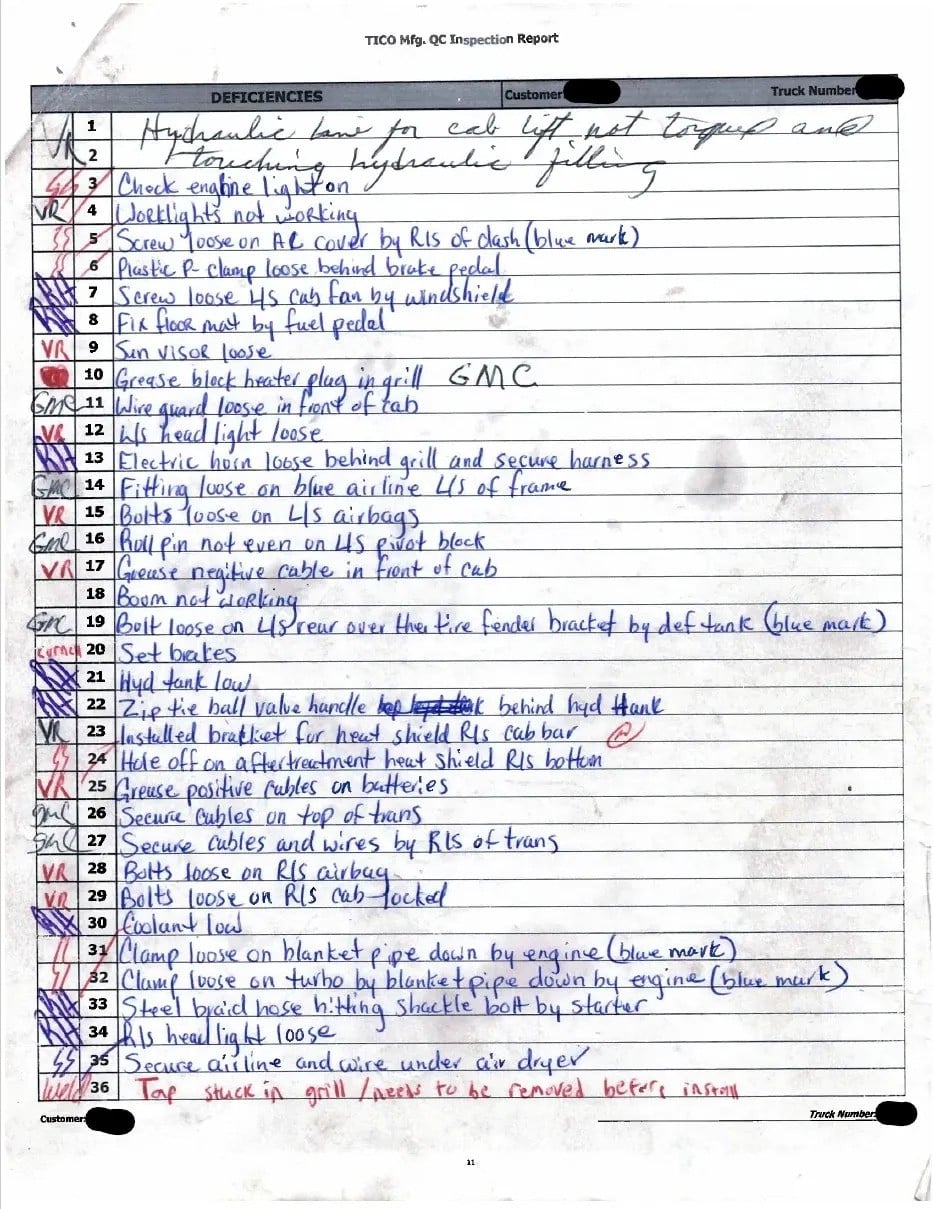 TICO Mfg. QC Inspection Report
DEFICIENCIES Customer Truck Number
VR 1 Hydraulic Line for cab lift not torqued and
2 touching hydraulic fitting
SS 3 Check engine light on
VR 4 Worklights not working
SS 5 Screw loose on AC cover by R/S of dash (blue mark)
SS 6 Plastic P-clamp loose behind brake pedal
KH 7 Screw loose L/S cab fan by windshield
KH 8 Fix floor mat by fuel pedal
VR 9 Sun visor loose
10 Grease block heater plug in grill GMC
GMC 11 Wire guard loose in front of cab
VR 12 L/s head light loose
KH 13 Electric horn loose behind grill and secure harness
GMC 14 Fitting loose on blue airline L/S of frame
VR 15 Bolts loose on L/S airbags
GMC 16 Roll pin not even on L/S pivot block
VR 17 Grease negitive cable in front of cab
18 Boom not working
GMC 19 Bolt loose on L/S rear over the tire fender bracket by def tank (blue mark)
20 Set brakes
KH 21 Hyd tank low
KH 22 Zip tie ball valve handle behind hyd tank
VR 23 Installed bracket for heat shield R/s cab bar
SS 24 Hole off on aftertreatment heat shield R/S bottom
VR 25 Grease positive cables on batteries
GMC 26 Secure cables on top of trans
GMC 27 Secure cables and wires by R/S of trans
VR 28 Bolts loose on R/s airbag
VR 29 Bolts loose on R/S cab locked
KH 30 Coolant low
SS 31 Clamp loose on blanket pipe down by engine (blue mark)
SS 32 Clamp loose on turbo by blanket pipe down by engine (blue mark)
KH 33 Steel braid hose hitting shackle bolt by starter
KH 34 R/s head light loose
SS 35 Secure airline and wire under air dryer
Weld 36 Tap stuck in grill / needs to be removed before install
Customer: Truck Number:
11